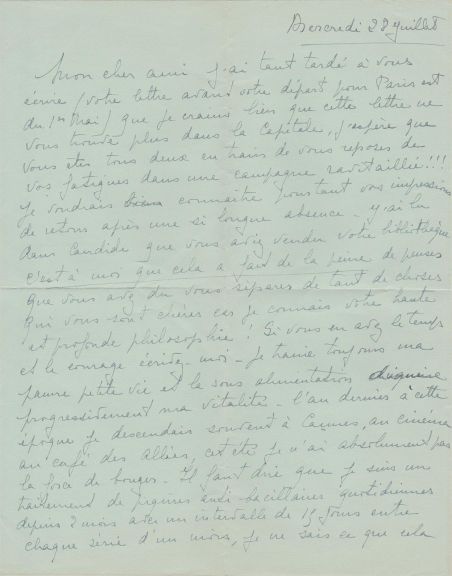 Mercredi 28 Juillet
Mon cher ami j'ai tant tardé à vous
écrire (votre lettre avant votre départ pour Paris est
du 1er Mai) que je crains bien que cette lettre ne
vous trouve plus dans la Capitale, j'espère que
vous êtes tous deux en train de vous reposer de
vos fatigues dans une campagne ravitaillée !!!
je voudrais connaître pourtant vos impressions
de retour après une si longue absence - j'ai lu
dans Candide que vous aviez vendu votre bibliothèque
c'est à moi que cela a fait de la peine de penser
que vous avez dû vous séparer de tant de choses
qui vous sont chères car je connais votre haute
et profonde philosophie ! Si vous en avez le temps
et le courage écrivez-moi - je traine toujours ma
pauvre petite vie et la sous alimentation
progressivement ma vitalité - l'an dernier à cette
époque je descendais souvent à Cannes, au cinéma
au café des Alliés, cet été je n'ai absolument pas
la force de bouger - Il faut dire que je suis un
traitement de piqûres anti-bacillaires quotidiennes
depuis 2 mois avec un intervalle de 15 jours entre
chaque série d'un mois, je ne sais ce que cela